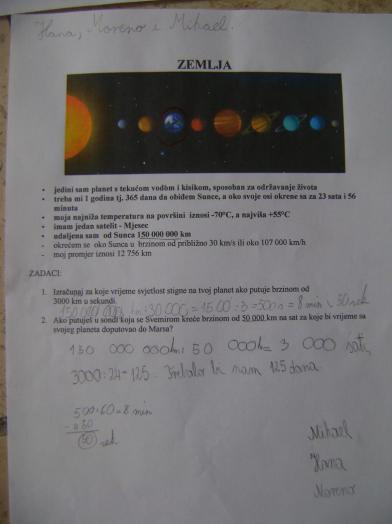 Hana, Moreno i Mihael.
ZEMLJA
- jedini sam planet s tekućom vodom i kisikom, sposoban za održavanje života
- treba mi 1 godina tj. 365 dana da obiđem Sunce, a oko svoje osi okrene sa za 23 sata i 56
minuta
- moja najniža temperatura na površini iznosi -70°C, a najviša +55°C
- imam jedan satelit - Mjesec
- udaljena sam od Sunca 150 000 000 km
- okrećem se oko Sunca u brzinom od približno 30 km/s ili oko 107 000 km/h
- moj promjer iznosi 12 756 km
ZADACI:
1. Izračunaj za koje vrijeme svjetlost stigne na tvoj planet ako putuje brzinom od
3000 km u sekundi.
150 000 000 : 30 000 = 1500 : 3 = 500 s = 8 min 20 sek
2. Ako putuješ u sondi koja se Svemirom kreće brzinom od 50 000 km na sat za koje bi vrijeme sa
svojeg planeta doputovao do Marsa?
150 000 000 : 50 000 = 3 000 sati
3000 : 24 = 125. Trebalo bi nam 125 dana
500 : 60 = 8 min
- 480
20 sek
Mihael
Hana
Moreno